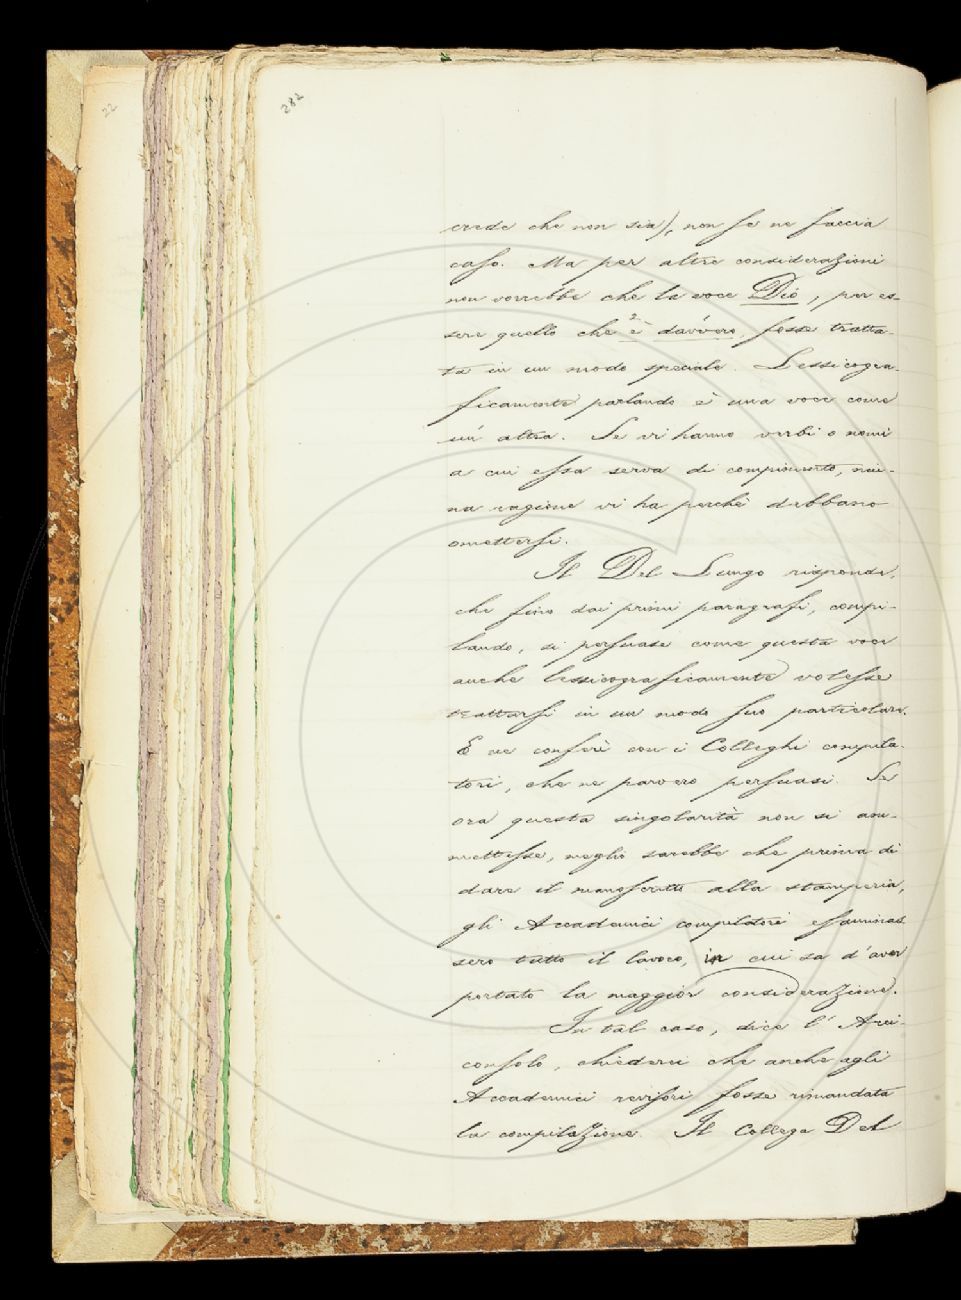 22
282
crede che non sia), non se ne faccia
caso. Ma per altre considerazioni
non vorrebbe che la voce Dio, per es-
sere quello che è davvero, fosse tratta-
ta in un modo speciale. Lessicogra-
ficamente parlando è una voce come
un' altra. Se vi hanno verbi o nomi
a cui essa serva di compimento, niu-
na ragione vi ha perchè debbano
omettersi.
Il Del Lungo risponde,
che fino dai primi paragrafi, compi-
lando, si persuase come questa voce
anche lessicograficamente volesse
trattarsi in un modo suo particolare.
E ne conferì con i Colleghi compila-
tori, che ne parvero persuasi. Se
ora questa singolarità non si am-
mettesse, meglio sarebbe che prima di
dare il manoscritto alla stamperia,
gli Accademici compilatori esaminas
sero tutto il lavoro, in cui sa d'aver
portato la maggior considerazione.
In tal caso, dice l' Arci-
consolo, chiederei che anche agli
Accademici revisori fosse rimandata
la compilazione. Il Collega Del